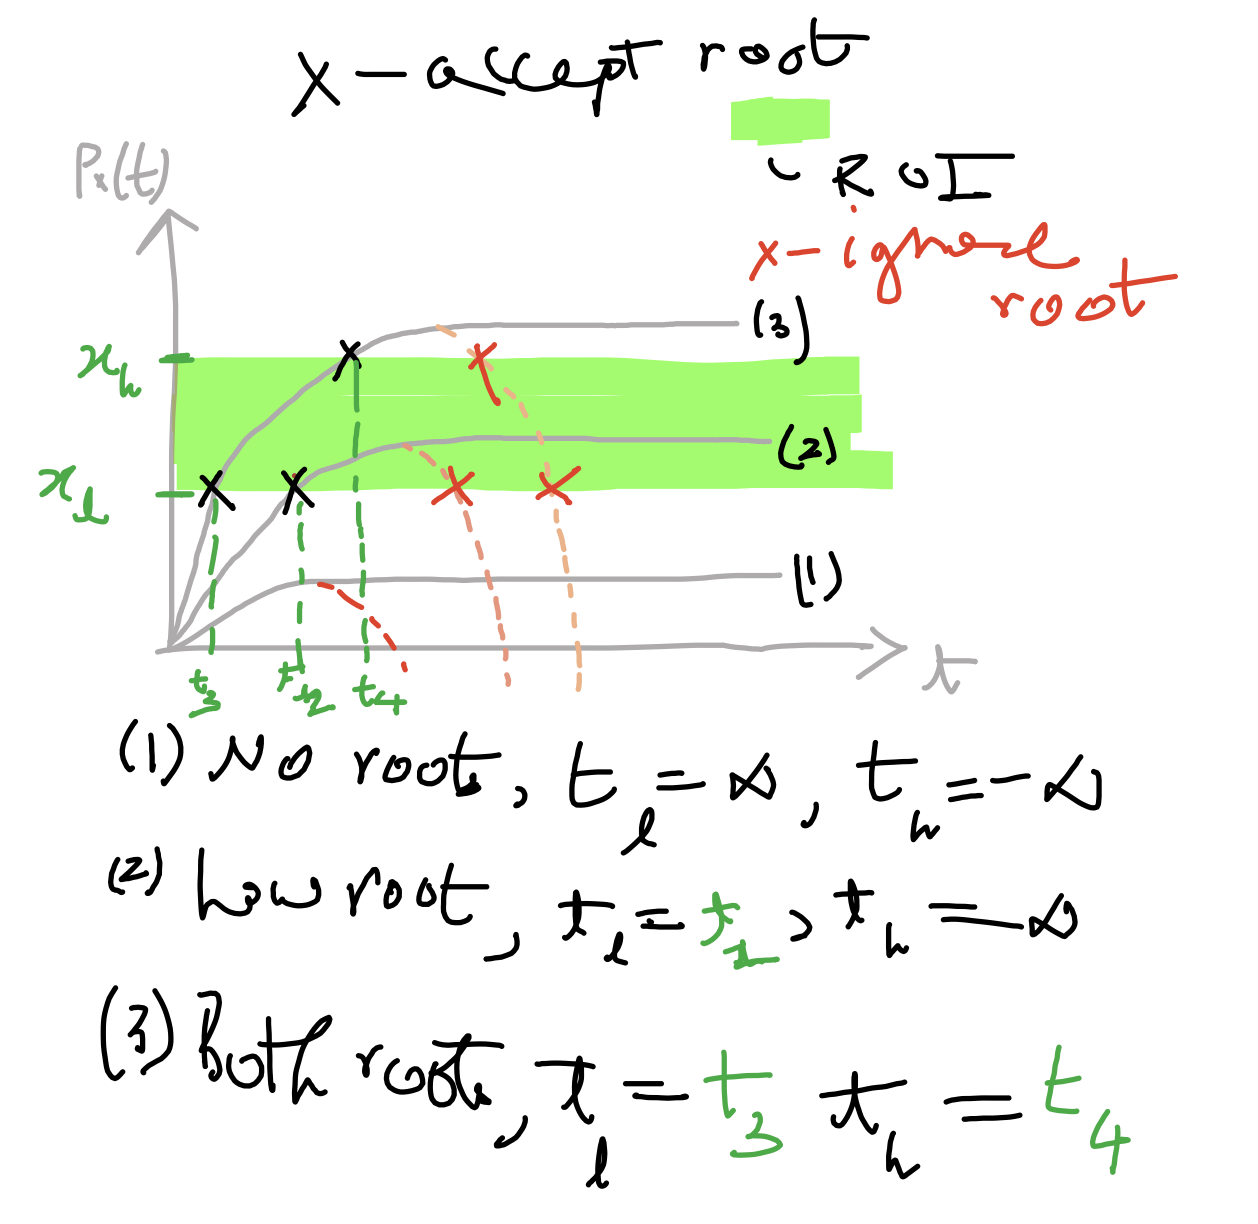 x - accept root
Pₓ(t)
ROI
x - ignore root
(3)
xₕ
(2)
xₗ
(1)
t
t₃
t₂
t₄
(1) No roots, tₗ = ∞, tₕ = -∞
(2) Low root, tₗ = t₂, tₕ = ∞
(3) Both roots, tₗ = t₃ tₕ = t₄